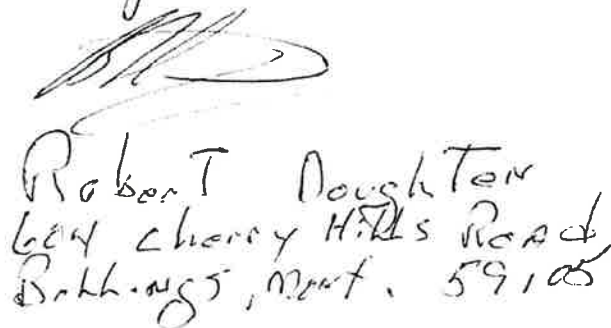 Robert Doughten
604 Cherry Hills Road
Billings, Mont. 59105